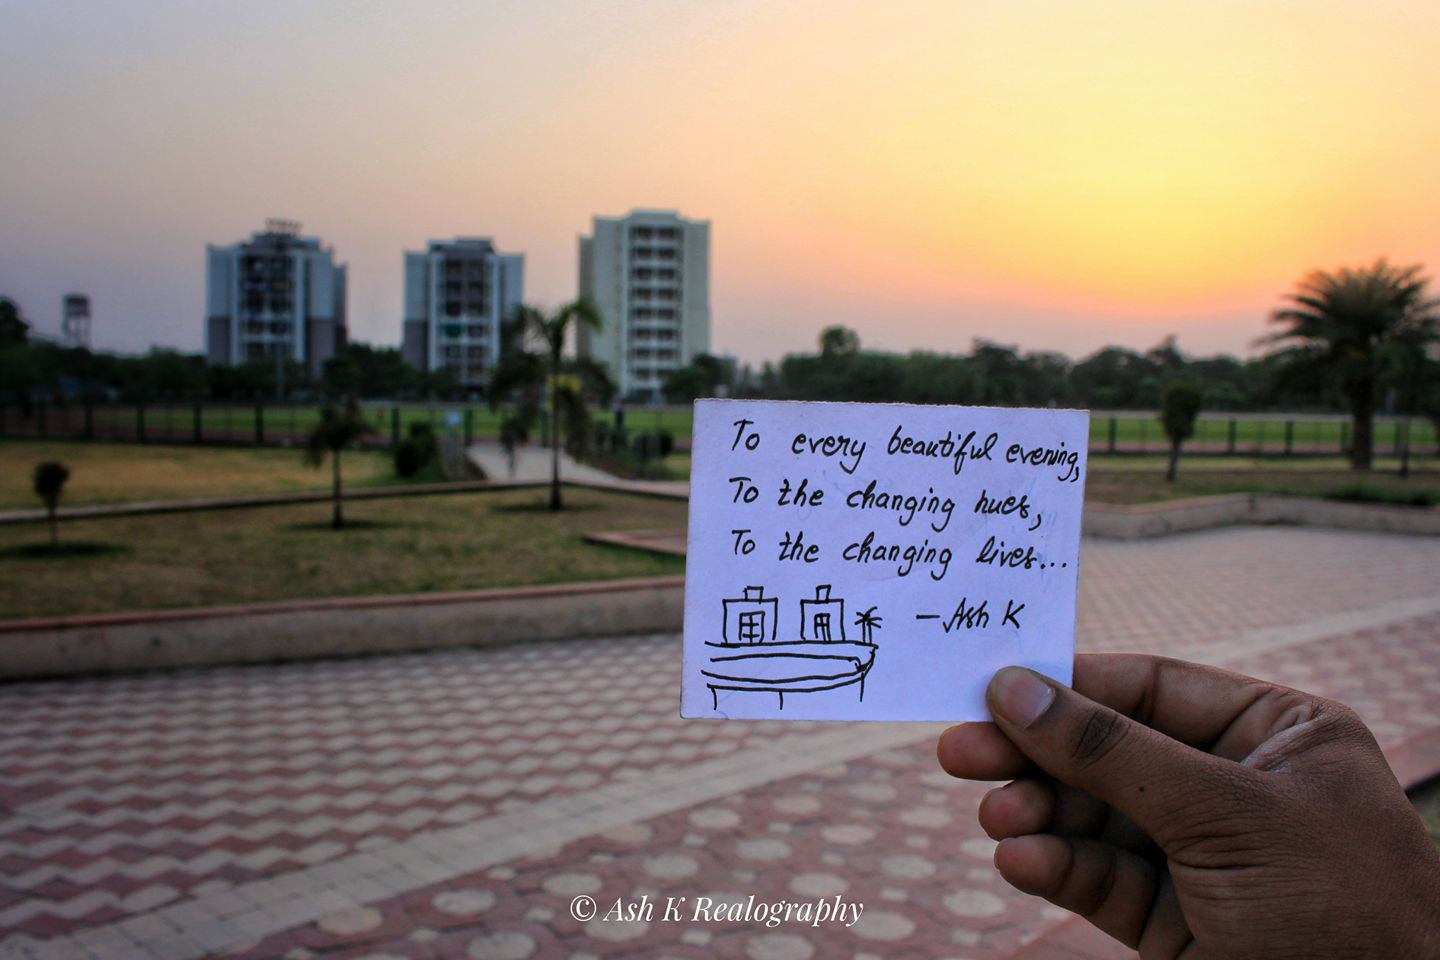 To every beautiful evening,
To the changing hues,
To the changing lives...
- Ash K
© Ash K Realography